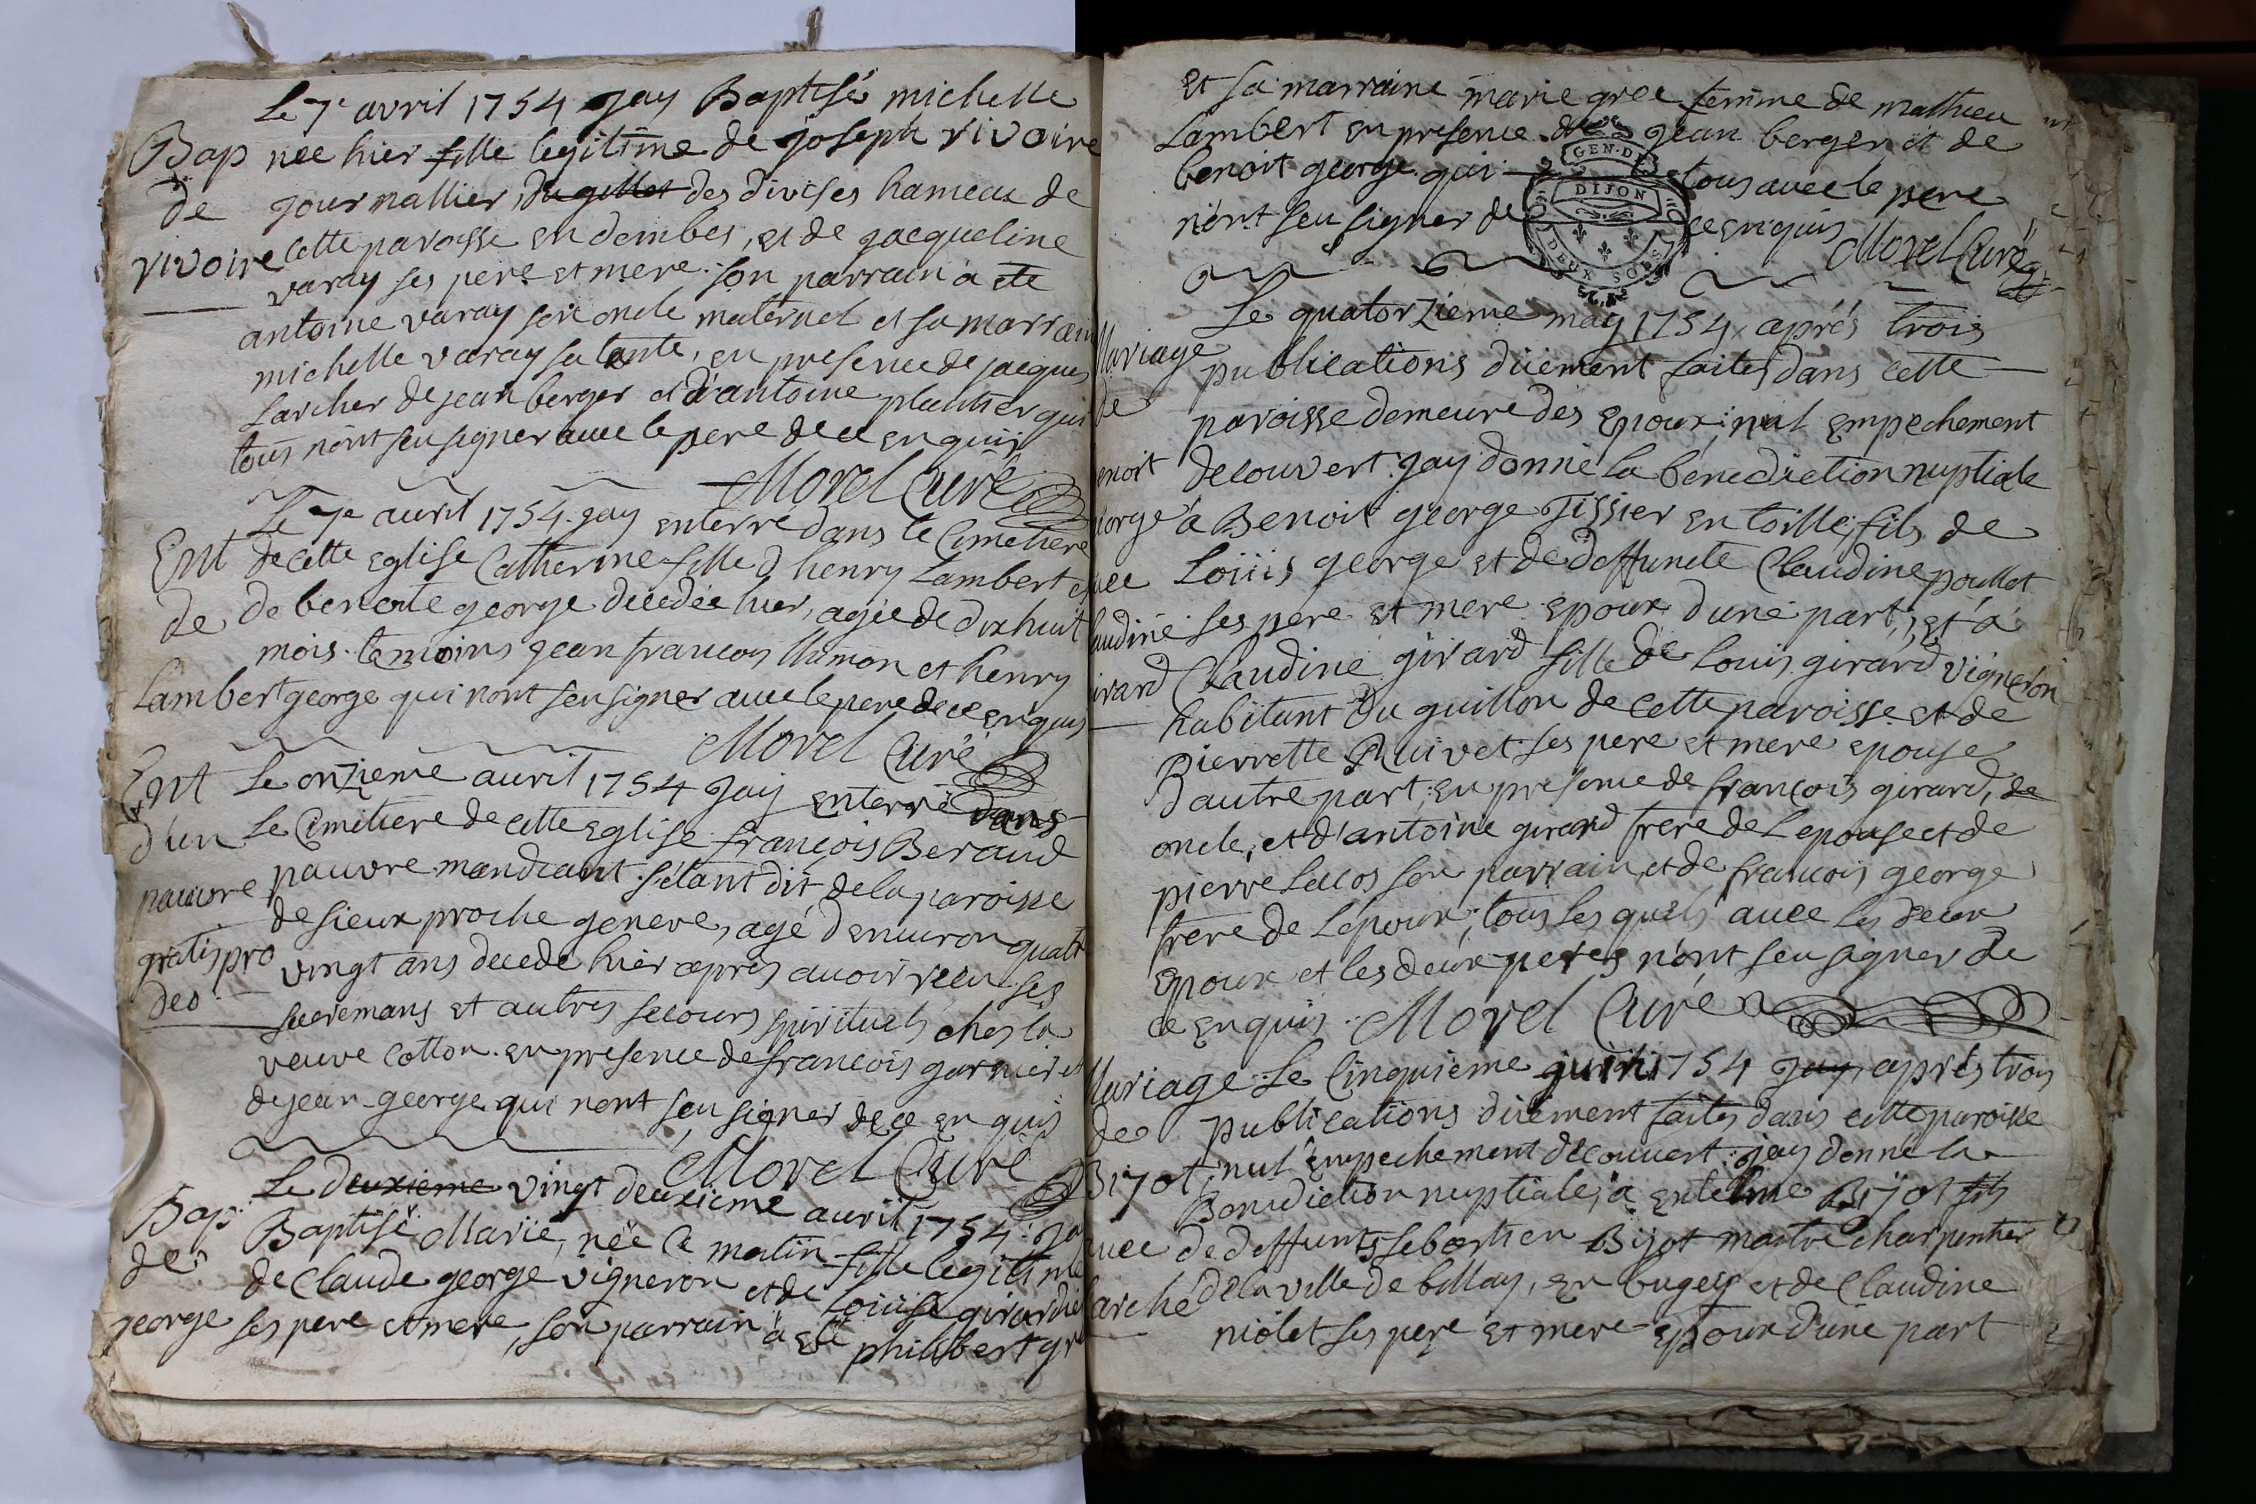 Le 7e avril 1754 Jay Baptisé michelle
Bap née hier fille legitime de joseph rivoire
de journallier, du gillet des divises hameau de
rivoire cette paroisse en dombes, et de jacqueline
varay ses pere et mere. son parrain a ete
antoine varay son oncle maternel et sa marraine
michelle varay sa tante, en presence de jacques
Larcher de jean berger et d'antoine plantier qui
tous n'ont seu signer avec le pere de ce enquis
Morel Curé
Le 7e avril 1754. jay enterré dans le Cimetiere
Ent de cette Eglise Catherine fille d'henry Lambert et
de de benoite george decedée hier, agée de dixhuit
mois. temoins jean francois et henry
Lambert george qui nont seu signer avec le pere de ce enquis
Morel Curé
Ent Le onzieme avril 1754 Jay enterré dans
d'un Le Cimetiere de cette Eglise francois Beraud
pauvre pauvre mandiant s'etant dit de la paroisse
de sieux proche geneve, agé d'environ quatre
gratis pro vingt ans decedé hier après avoir receu ses
deo sacremans et autres secours spirituels ches la
veuve Cotton. en presence de francois garnier et
de jean george qui nont seu signer de ce enquis
Morel Curé
Le deuxieme vingt deuxieme avril 1754. Jay
Bap. Baptisé Marie, née ce matin fille legitime
de de Claude george vigneron et de Loüise girardie
george ses pere et mere, son parrain a esté philibert gre
Et sa marraine marie grec femme de mathieu
Lambert en presence de jean berger et de
benoit george qui tous avec le pere
n'ont seu signer de ce enquis
Morel Curé
GEN. DE
DIJON
DEUX SOLS
Le quatorzieme may 1754 aprés trois
Mariage publications düement faites dans cette
de paroisse demeure des Epoux; nul Empechement
benoit decouvert jay donné la benediction nuptiale
george á Benoit george Tissier en toille, fils de
avec Loüis george et de deffuncte Claudine poullet
claudine ses pere et mere epoux d'une part, et á
girard Claudine girard fille de Louis girard vigneron
habitant du guillon de cette paroisse et de
Pierrette Ruivet ses pere et mere epouse
d'autre part, en presence de françois girard, de
oncle, et d'antoine girard frere de l'epouse et de
pierre Lacos son parrain, et de francois george
frere de l'epoux; tous les quels avec les deux
Epoux et les deux peres n'ont seu signer de
ce enquis. Morel Curé
Mariage Le Cinquieme juin 1754 Jay, aprés trois
de publications düement faites dans cette paroisse
Bijot, nul Empechement decouvert jay donné la
Benediction nuptiale, a entelme Bijot fils
avec de deffunts sebastien Bijot maitre charpentier
Larché de la ville de billay, en bugey et de Claudine
niolet ses pere et mere Epoux d'une part